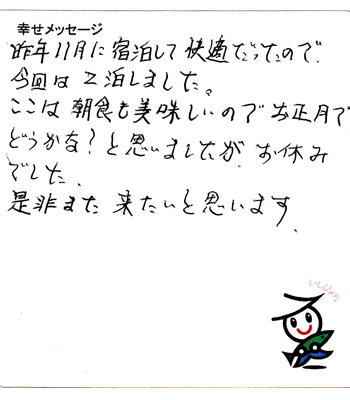 幸せメッセージ
昨年11月に宿泊して快適だったので
今回は2泊しました。
ここは朝食も美味しいのでお正月で
どうかな？と思いましたが お休み
でした.
是非また来たいと思います.